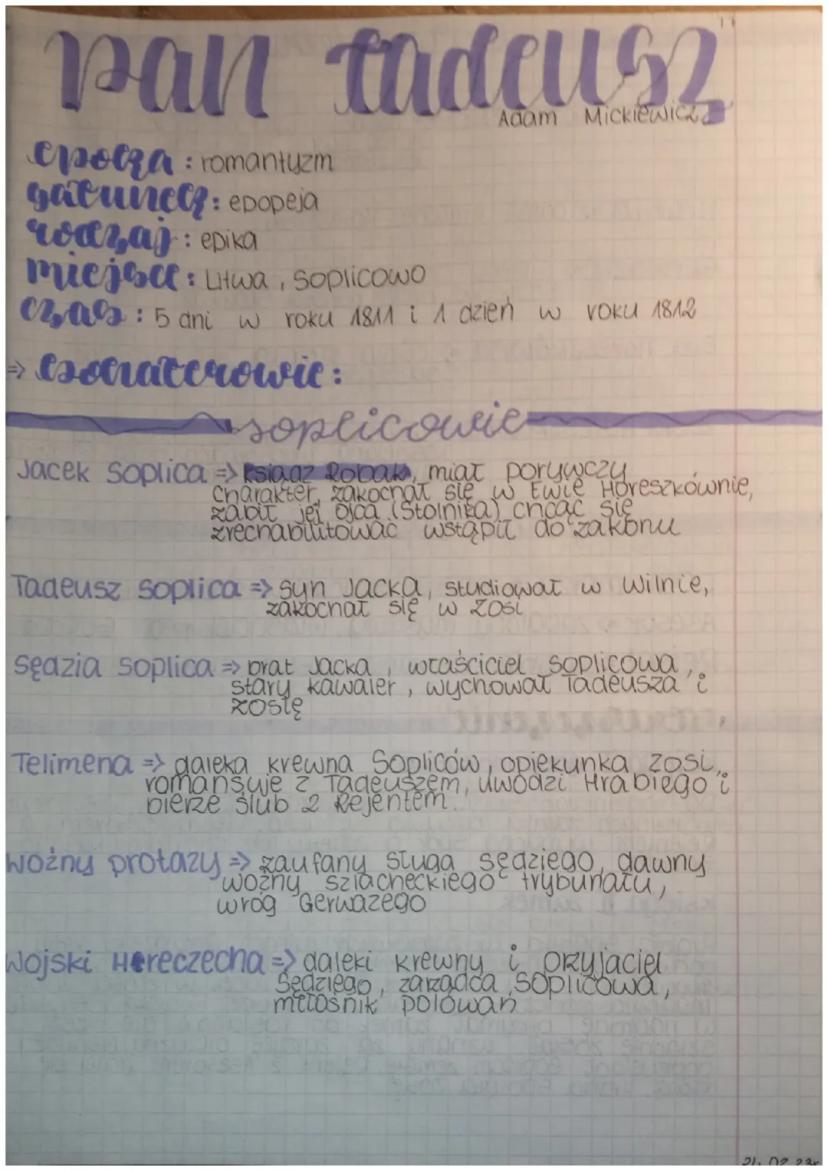 Pan Tadeusz
Adam Mickiewicz
epoka: romantyzm
gatunek: epopeja
rodzaj: epika
miejsce: Litwa, Soplicowo
czas: 5 dni w roku 1811 i 1 dzień w roku 1812
⇒ bohaterowie:
soplicowie
Jacek Soplica ⇒ ksiądz Robak, miał porywczy
charakter, zakochał się w Ewie Horeszkównie,
zabił jej ojca (Stolnika) chcąc się
zrechabilitować wstąpił do zakonu
Tadeusz Soplica ⇒ syn Jacka, studiował w Wilnie,
zakochał się w Zosi
Sędzia Soplica ⇒ brat Jacka, właściciel Soplicowa,
stary kawaler, wychował Tadeusza i
Zosię
Telimena ⇒ daleka krewna Sopliców, opiekunka Zosi,
romansuje z Tadeuszem, uwodzi Hrabiego i
bierze ślub z Rejentem.
Woźny Protazy ⇒ zaufany sługa sędziego, dawny
woźny szlacheckiego trybunału,
wróg Gerwazego
Wojski Hereczecha ⇒ daleki krewny i przyjaciel
Sędziego, zarządca Soplicowa,
miłośnik polowań